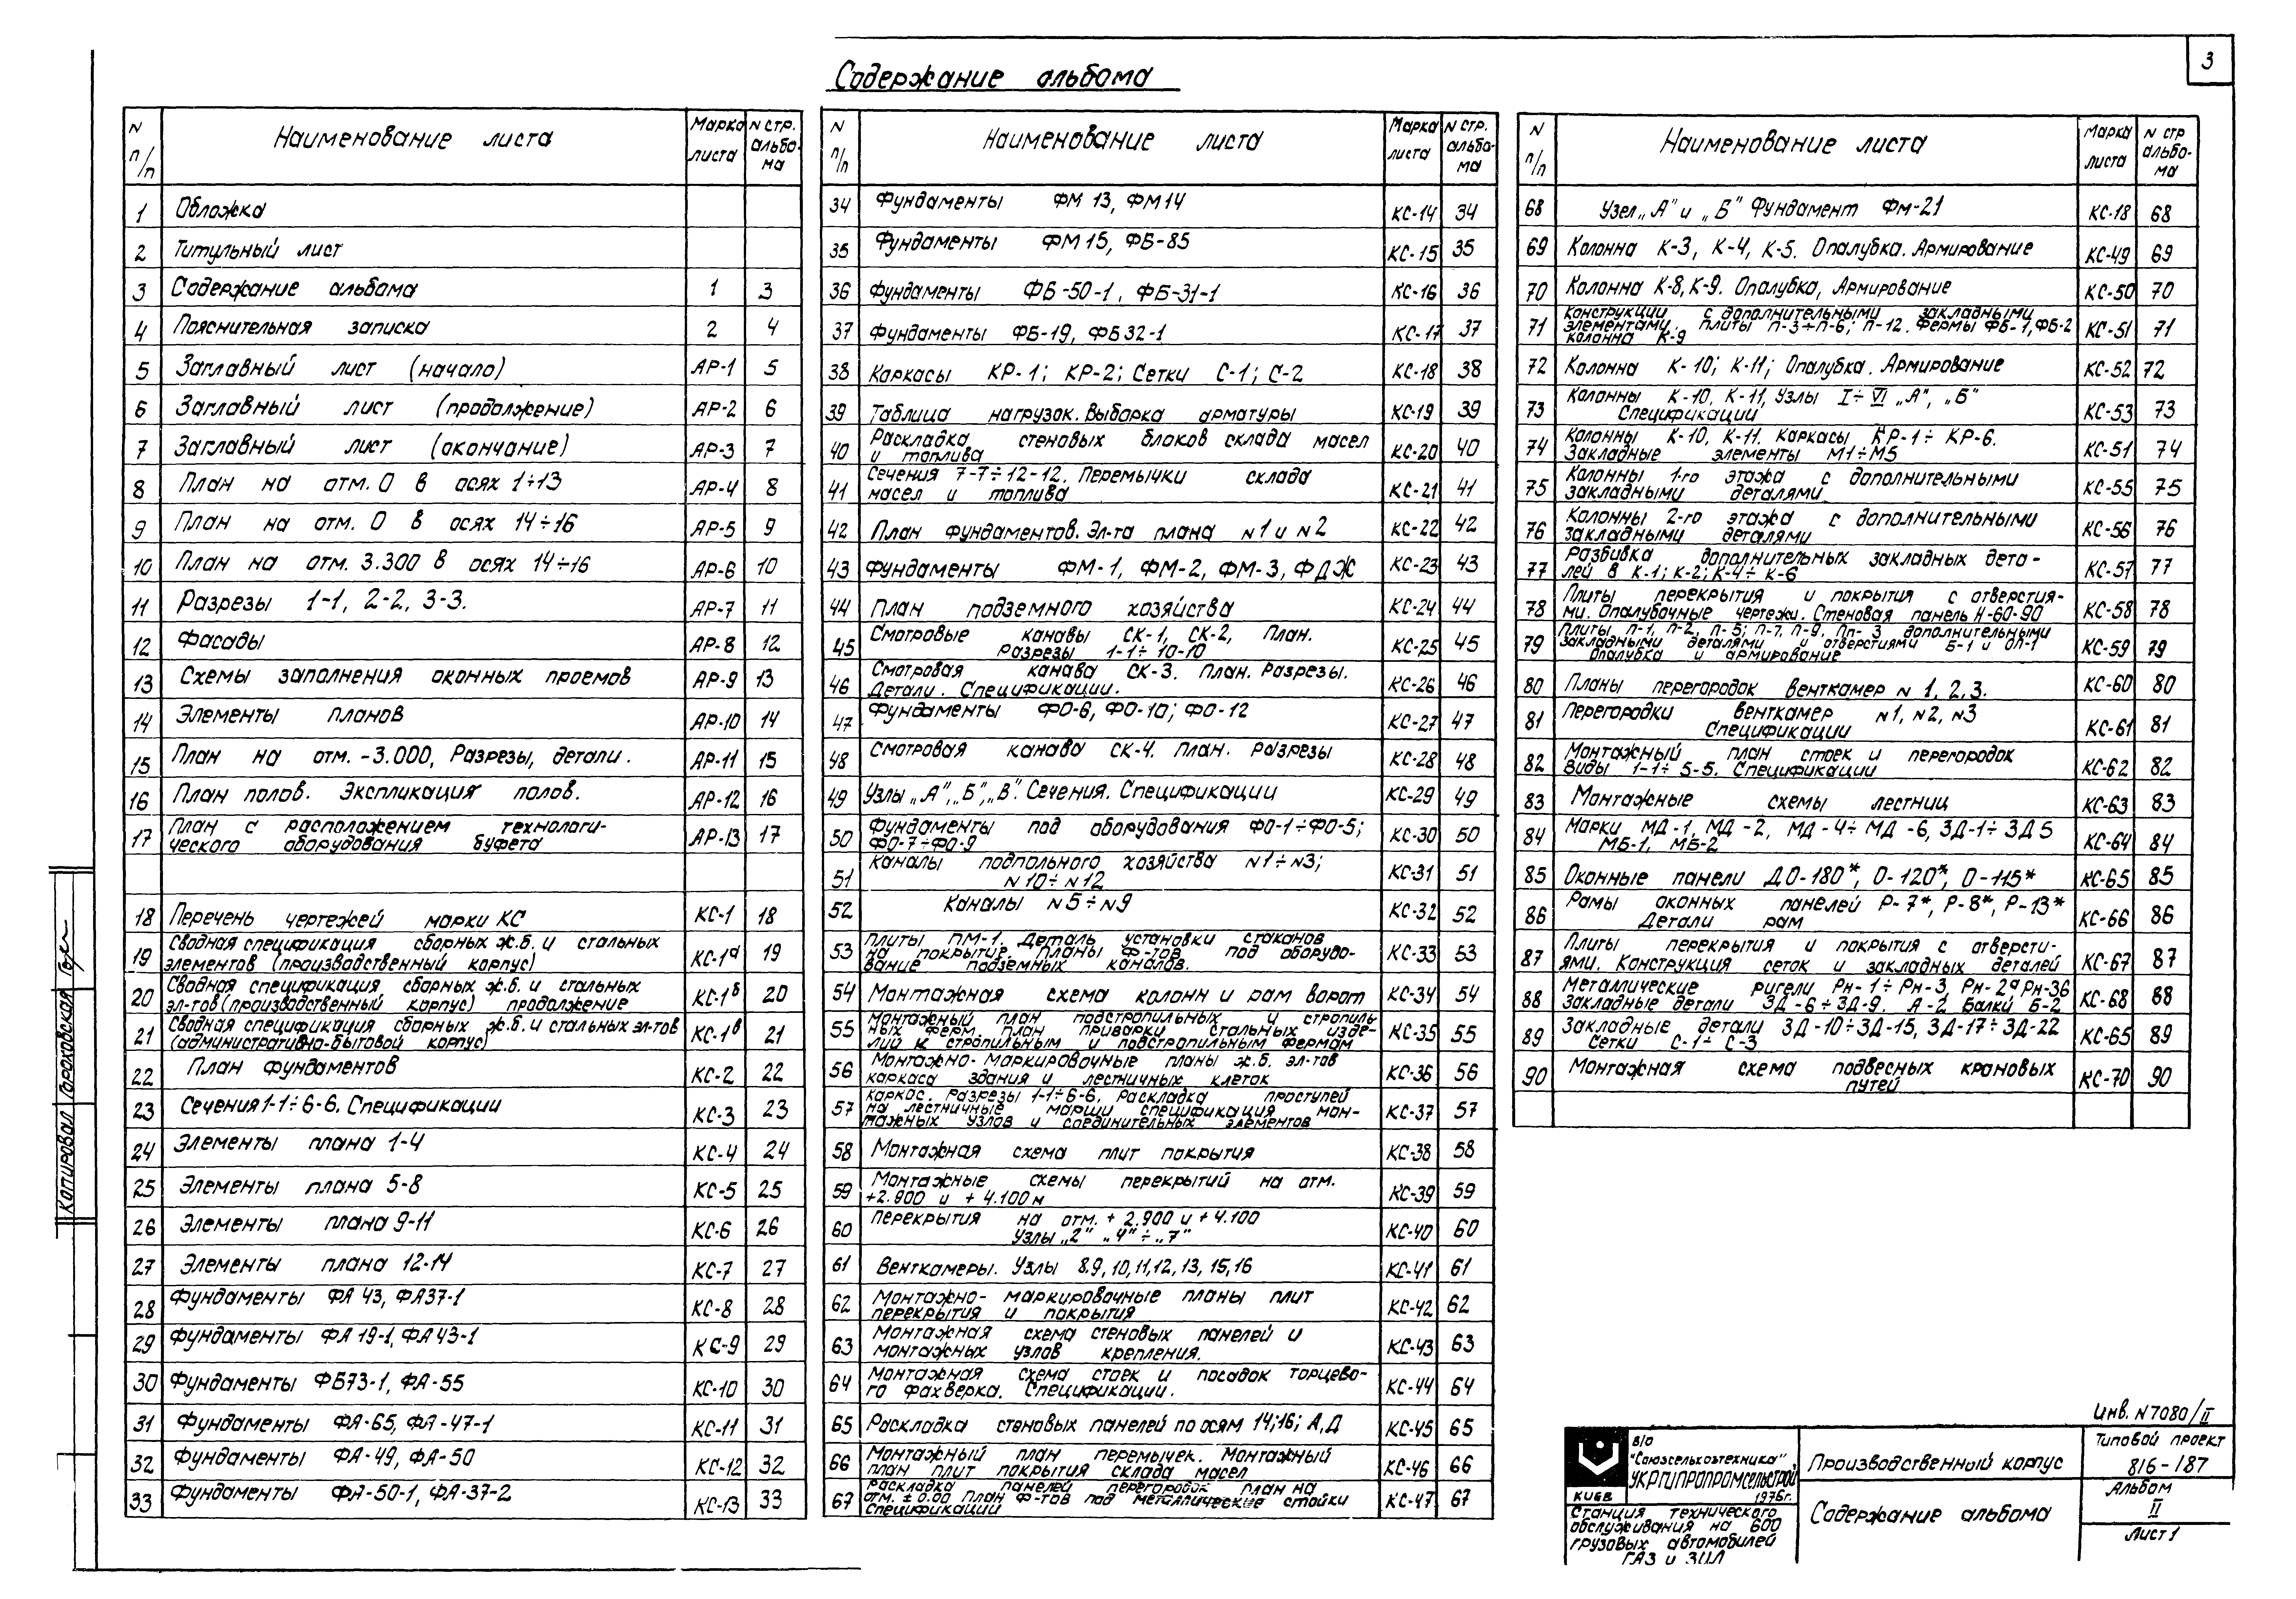 3
Содержание альбома
N п/п Наименование листа Марка листа N стр. альбома
1 Обложка
2 Титульный лист
3 Содержание альбома 1 3
4 Пояснительная записка 2 4
5 Заглавный лист (начало) АР-1 5
6 Заглавный лист (продолжение) АР-2 6
7 Заглавный лист (окончание) АР-3 7
8 План на отм. 0 в осях 1÷13 АР-4 8
9 План на отм. 0 в осях 14÷16 АР-5 9
10 План на отм. 3.300 в осях 14÷16 АР-6 10
11 Разрезы 1-1, 2-2, 3-3. АР-7 11
12 Фасады АР-8 12
13 Схемы заполнения оконных проемов АР-9 13
14 Элементы планов АР-10 14
15 План на отм. -3.000, Разрезы, детали. АР-11 15
16 План полов. Экспликация полов. АР-12 16
17 План с расположением технологи-
ческого оборудования буфета АР-13 17
18 Перечень чертежей марки КС КС-1 18
19 Сводная спецификация сборных ж.б. и стальных
элементов (производственный корпус) КС-1а 19
20 Сводная спецификация сборных ж.б. и стальных
эл-тов (производственный корпус) продолжение КС-1б 20
21 Сводная спецификация сборных ж.б. и стальных эл-тов
(административно-бытовой корпус) КС-1в 21
22 План фундаментов КС-2 22
23 Сечения 1-1÷6-6. Спецификации КС-3 23
24 Элементы плана 1-4 КС-4 24
25 Элементы плана 5-8 КС-5 25
26 Элементы плана 9-11 КС-6 26
27 Элементы плана 12-14 КС-7 27
28 Фундаменты ФА 43, ФА37-1 КС-8 28
29 Фундаменты ФА 19-1, ФА 43-1 КС-9 29
30 Фундаменты ФБ73-1, ФА-55 КС-10 30
31 Фундаменты ФА-65, ФА-47-1 КС-11 31
32 Фундаменты ФА-49, ФА-50 КС-12 32
33 Фундаменты ФА-50-1, ФА-37-2 КС-13 33
N п/п Наименование листа Марка листа N стр. альбо-ма
34 Фундаменты ФМ 13, ФМ14 КС-14 34
35 Фундаменты ФМ 15, ФБ-85 КС-15 35
36 Фундаменты ФБ-50-1, ФБ-31-1 КС-16 36
37 Фундаменты ФБ-19, ФБ 32-1 КС-17 37
38 Каркасы КР-1; КР-2; Сетки С-1; С-2 КС-18 38
39 Таблица нагрузок. Выборка арматуры КС-19 39
40 Раскладка стеновых блоков склада масел
и топлива КС-20 40
41 Сечения 7-7÷12-12. Перемычки склада
масел и топлива КС-21 41
42 План фундаментов. Эл-та плана N1 и N2 КС-22 42
43 Фундаменты ФМ-1, ФМ-2, ФМ-3, ФДЖ КС-23 43
44 План подземного хозяйства КС-24 44
45 Смотровые канавы СК-1, СК-2, План.
Разрезы 1-1÷10-10 КС-25 45
46 Смотровая канава СК-3. План. Разрезы.
Детали. Спецификации. КС-26 46
47 Фундаменты ФО-6, ФО-10; ФО-12 КС-27 47
48 Смотровая канава СК-4. План. Разрезы КС-28 48
49 Узлы „А", „Б", „В". Сечения. Спецификации КС-29 49
50 Фундаменты под оборудования ФО-1÷ФО-5;
ФО-7÷ФО-9 КС-30 50
51 Каналы подпольного хозяйства N1÷N3;
N10÷N12 КС-31 51
52 Каналы N5÷N9 КС-32 52
53 Плиты ПМ-1. Деталь установки стаканов
на покрытие. Планы Ф-тов под оборудо-
вание подземных каналов. КС-33 53
54 Монтажная схема колонн и рам ворот КС-34 54
55 Монтажный план подстропильных и стропиль
ных ферм. план приварки стальных изде-
лий к стропильным и подстропильным фермам КС-35 55
56 Монтажно-маркировочные планы ж.б. эл-тов
каркаса здания и лестничных клеток КС-36 56
57 Каркас. Разрезы 1-1÷6-6. Раскладка проступей
на лестничные марши спецификация мон-
тажных узлов и соединительных элементов КС-37 57
58 Монтажная схема плит покрытия КС-38 58
59 Монтажные схемы перекрытий на отм.
+2.900 и +4.100м КС-39 59
60 Перекрытия на отм. +2.900 и +4.100
Узлы „2" „4"÷„7" КС-40 60
61 Венткамеры. Узлы 8,9,10,11,12,13,15,16 КС-41 61
62 Монтажно-маркировочные планы плит
перекрытия и покрытия КС-42 62
63 Монтажная схема стеновых панелей и
монтажных узлов крепления. КС-43 63
64 Монтажная схема стоек и посадок торцево-
го фахверка. Спецификации. КС-44 64
65 Раскладка стеновых панелей по осям 14;16; А,Д КС-45 65
66 Монтажный план перемычек. Монтажный
план плит покрытия склада масел КС-46 66
67 Раскладка панелей перегородок план на
отм. ±0.00 План ф-тов под металлические стойки
Спецификации КС-47 67
N п/п Наименование листа Марка листа N стр альбо-ма
68 Узел „А" и „Б" Фундамент Фм-21 КС-18 68
69 Колонна К-3, К-4, К-5. Опалубка. Армирование КС-49 69
70 Колонна К-8, К-9. Опалубка, Армирование КС-50 70
71 Конструкции с дополнительными закладными
элементами. плиты П-3÷П-6; П-12. Фермы ФБ-1, ФБ-2
колонна К-9 КС-51 71
72 Колонна К-10; К-11; Опалубка. Армирование КС-52 72
73 Колонны К-10, К-11, Узлы I÷VI „А", „Б"
Спецификации КС-53 73
74 Колонны К-10, К-11. Каркасы КР-1÷КР-6.
Закладные элементы М1÷М5 КС-51 74
75 Колонны 1-го этажа с дополнительными
закладными деталями КС-55 75
76 Колонны 2-го этажа с дополнительными
закладными деталями КС-56 76
77 Разбивка дополнительных закладных дета-
лей в К-1; К-2; К-4÷К-6 КС-57 77
78 Плиты перекрытия и покрытия с отверстия-
ми. Опалубочные чертежи. Стеновая панель Н-60-90 КС-58 78
79 Плиты П-1, П-2, П-5; П-7, П-9, Пп-3 дополнительными
закладными деталями и отверстиями Б-1 и ОП-1
Опалубка и армирование КС-59 79
80 Планы перегородок венткамер N 1, 2, 3. КС-60 80
81 Перегородки венткамер N1, N2, N3
Спецификации КС-61 81
82 Монтажный план стоек и перегородок
Виды 1-1÷5-5. Спецификации КС-62 82
83 Монтажные схемы лестниц КС-63 83
84 Марки МД-1, МД-2, МД-4÷МД-6, ЗД-1÷ЗД 5
МБ-1, МБ-2 КС-64 84
85 Оконные панели ДО-180*, О-120*, О-115* КС-65 85
86 Рамы оконных панелей Р-7*, Р-8*, Р-13*
Детали рам КС-66 86
87 Плиты перекрытия и покрытия с отверсти-
ями. Конструкция сеток и закладных деталей КС-67 87
88 Металлические ригели Рн-1÷Рн-3, Рн-2а Рн-3б
Закладные детали ЗД-6÷ЗД-9. А-2, Балки Б-2 КС-68 88
89 Закладные детали ЗД-10÷ЗД-15, ЗД-17÷ЗД-22
Сетки С-1÷С-3 КС-65 89
90 Монтажная схема подвесных крановых
путей КС-70 90
Копировал Гороховская
Инв. N7080/II
В/О
"Союзсельхозтехника"
УКРГИПРОПРОМСЕЛЬСТРОЙ
КИЕВ 1976г.
Станция технического
обслуживания на 600
грузовых автомобилей
ГАЗ и ЗИЛ
Производственный корпус
Содержание альбома
Типовой проект
816-187
Альбом
II
Лист 1